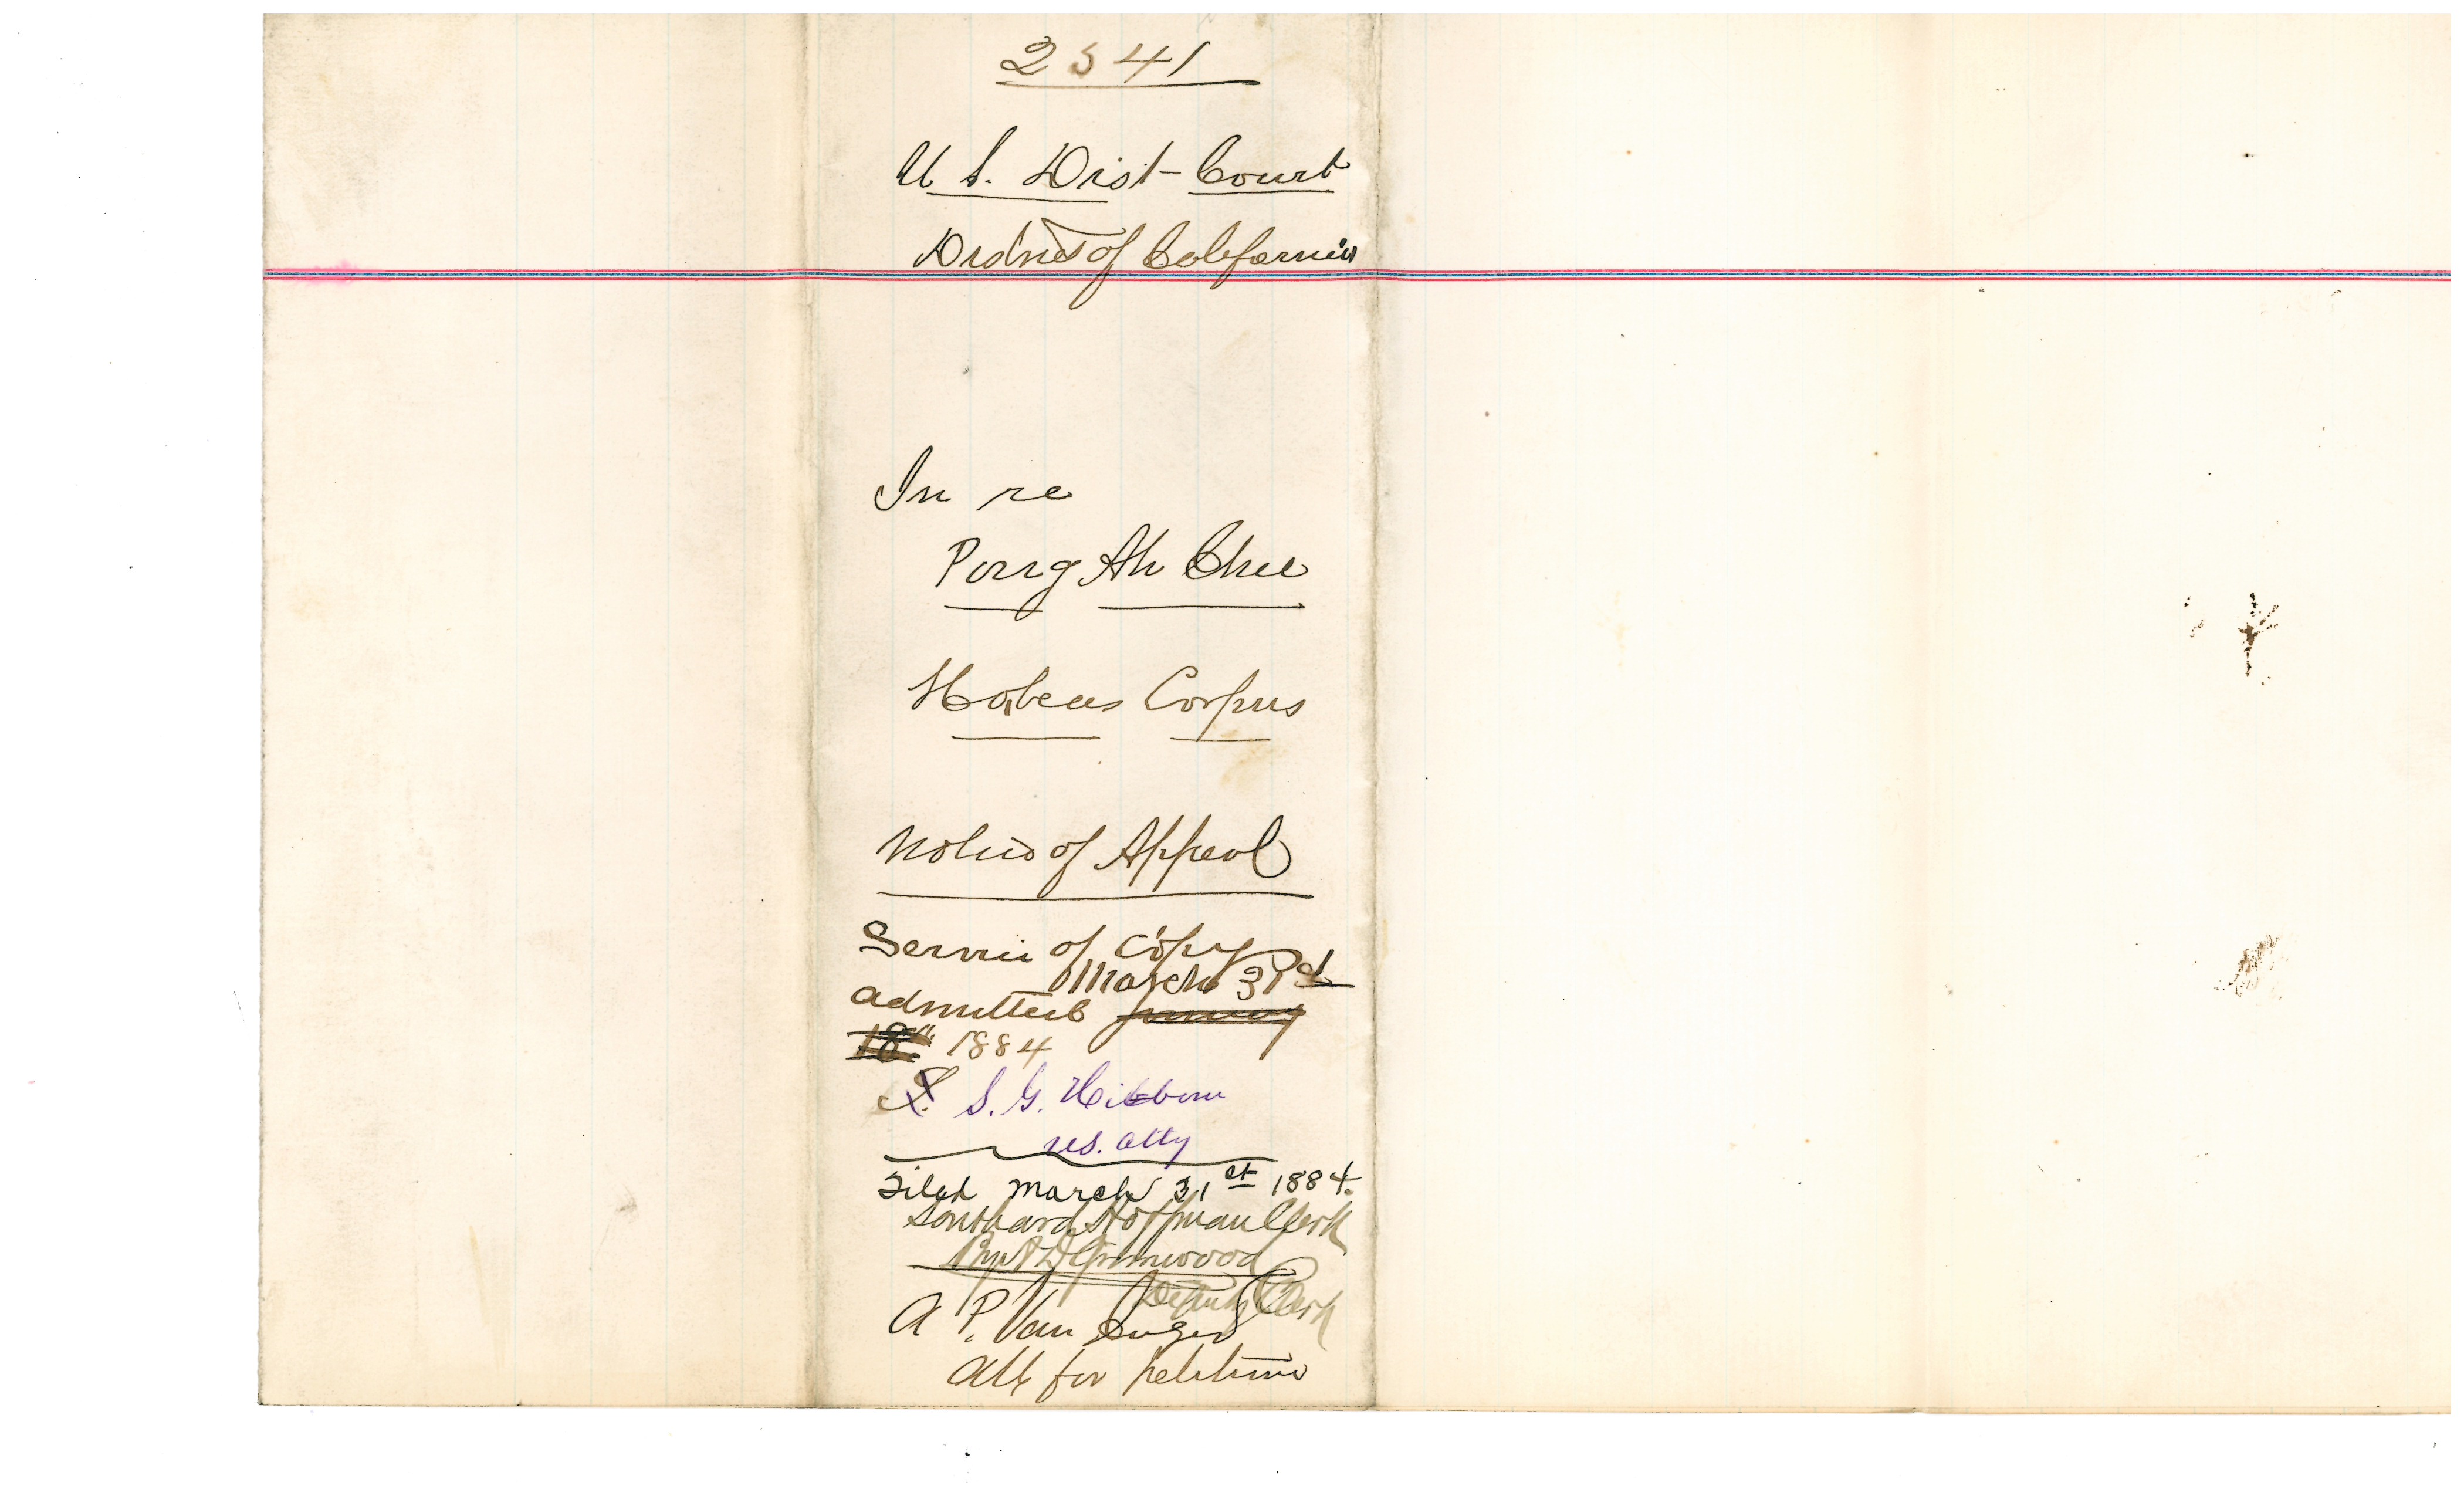 2341
U S. Dist Court
District of California
In re
Pong Ah Chee
Habeas Corpus
Notice of Appeal
Service of copy
March 31st
admitted
18th 1884
S. G. Hilborn
U.S. Atty
Filed March 31st 1884.
Southard Hoffman Clerk
By Greenwood
Deputy Clerk
A. P. Van Duzer
Att for petitioner